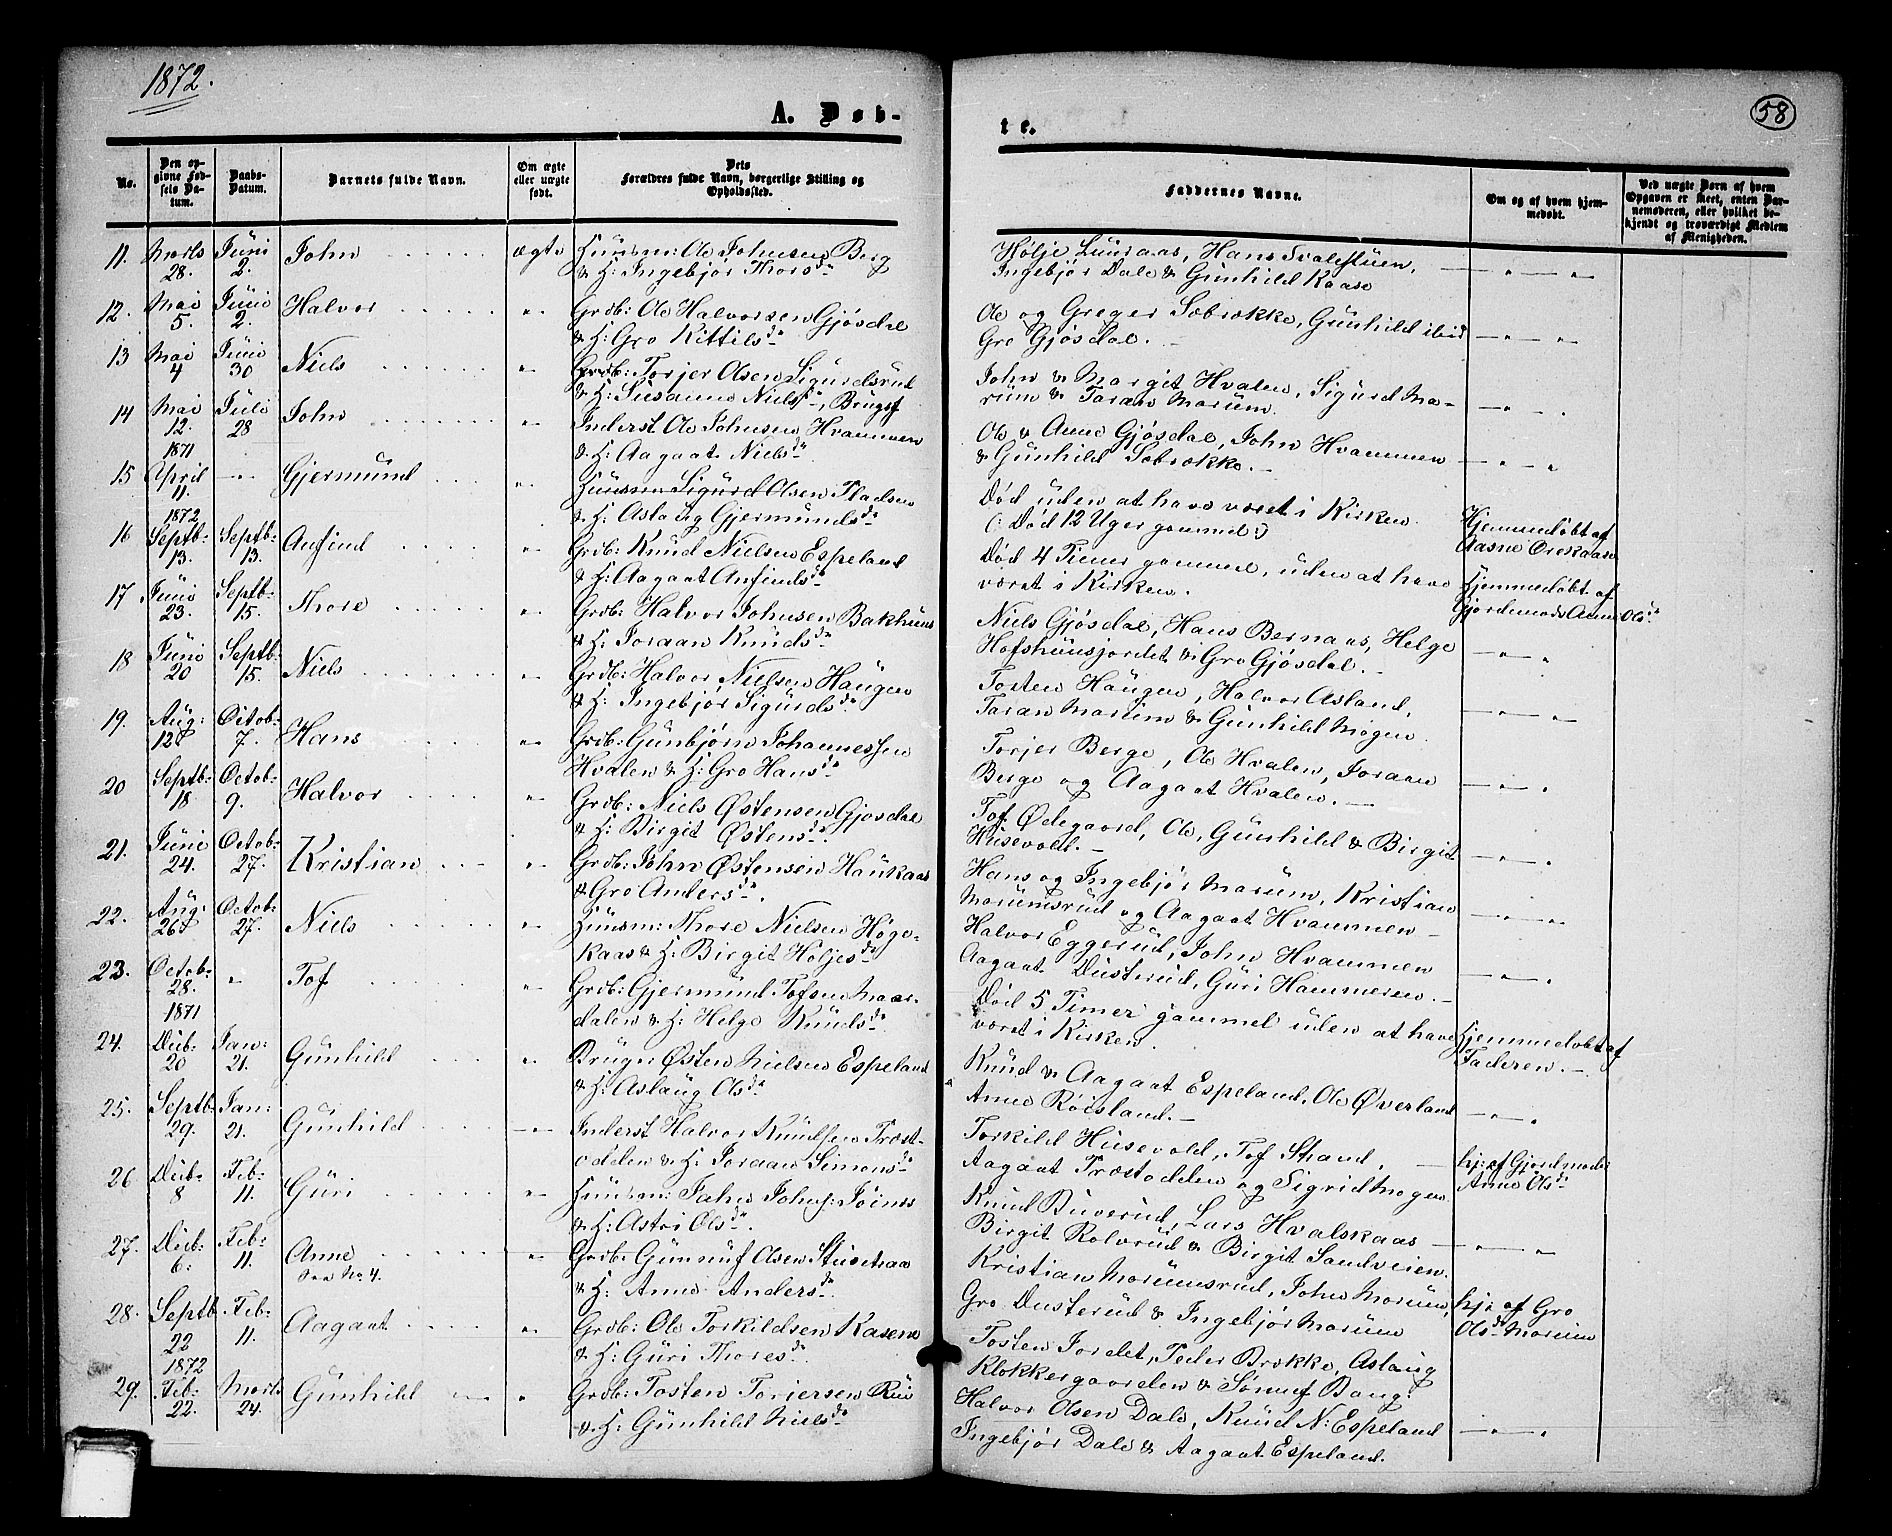 1872.
58
A. Døb-
te.
No.
Den op-
givne Fød-
sels Da-
tum.
Daabs-
Datum.
Barnets fulde Navn.
Om ægte
eller uægte
født.
Dets
Forældres fulde Navn, borgerlige Stilling og
Opholdssted.
Faddernes Navne.
Om og af hvem hjem-
medøbt.
Ved uægte Børn af hvem
Opgaven er skeet, enten Bar-
nemoderen, eller hvilket be-
kjendt og troværdigt Medlem
af Menigheden.
11. Marts 28. Juni 2. John ægte Huusm: Ole Johnsen Berg
& H: Ingebjør Thorsdr
Hølje Luuraas, Hans Svalestuen,
Ingebjør Dale & Gunhild Kaase
12. Mai 5. Juni 2. Halvor Grdb: Ole Halvorsen Gjøsdal
& H: Gro Kittilsdr
Ole og Greger Sebrekke, Gunhild ibid
Gro Gjøsdal.
13 Mai 4 Juni 30 Niels Grdb: Torjer Olsen Sigurdsrud
& H: Susanne Nielsdr, Brugsf
John & Margit Hvalen, Sigurd Ma-
rum & Taran Marum.
14 Mai 12. Juli 28 John Inderst Ole Johnsen Hvammen
& H: Aagaat Nielsdr
Ole & Anne Gjøsdal, John Hvammen
& Gunhild Sebrekke.
15 1871 April 11. Gjermund Huusm Sigurd Olsen Pladsen
& H: Aslaug Gjermundsdr
Død uden at have været i Kirken.
(: Død 12 Uger gammel:)
Hjemmedøbt af
Aasne Orekaasa
16 1872 Septb: 13. Septb: 13. Anfind Grdb: Knud Nielsen Espeland
& H: Aagaat Anfindsdr
Død 4 Timer gammel, uden at have
været i Kirken.
Hjemmedøbt af
Gjordemod: Anne Olsdr
17 Juni 23. Septb: 15. Thore Grdb: Halvor Johnsen Bakhuus
& H: Joraan Knudsdr
Niels Gjøsdal, Hans Bernaas, Helge
Hofshuusjordet & Gro Gjøsdal.
18 Juni 20 Septb: 15. Niels Grdb: Halvor Nielsen Haugen
& H: Ingebjør Sigurdsdr
Tosten Haugen, Halvor Asland,
Taran Marum & Gunhild Mogen.
19. Aug: 12 Octob: 7. Hans Grdb: Gunbjørn Johannessen
Hvalen & H: Gro Hansdr
Torjer Berge, Ole Hvalen, Joraan
Berge og Aagaat Hvalen.
20 Septb: 18 Octob: 9. Halvor Grdb: Niels Østensen Gjøsdal
& H: Birgit Østensdr
Tof Ødegaard, Ole, Gunhild & Birgit
Husevold.
21. Juni 24. Octob: 27. Kristian Grdb: John Østensen Haukaas
& Gro Andersdr.
Hans og Ingebjør Marum, Kristian
Marumsrud og Aagaat Hvammen
22. Aug: 26 Octob: 27. Niels Huusm: Thore Nielsen Høge-
kaas & H: Birgit Høljesdr
Halvor Eggerud, John Hvammen
Aagaat Dusterud, Guri Hammeren.
23. Octob: 28. Tof Grdb: Gjermund Tofsen Maar-
dalen & H: Helge Knudsdr
Død 5 Timer gammel uden at have
været i Kirken.
Hjemmedøbt af
Faderen.
24. 1871 Decb: 20 Jan: 21. Gunhild Bruger Østen Nielsen Espeland
& H: Aslaug Olsdr
Knud & Aagaat Espeland, Ole Øverland
Anne Røisland.
25. Septb: 29. Jan: 21. Gunhild Inderst Halvor Knudsen Træst-
odden & H: Joraan Simonsdr
Torkild Husevold, Tof Strand,
Aagaat Træstodden og Sigrid Mogen
26 Decb: 8 Feb: 11. Guri Huusm: John Johnf: Joines
& H: Astri Olsdr.
Knud Buverud, Lars Hvalskaas
Birgit Rolvrud & Birgit Sandveien.
hj: af Gjordmod:
Anne Olsdr
27. Decb: 6. Feb: 11. Anne
See No 4.
Grdb: Gunnuf Olsen Stuvetraa
& H: Anne Andersdr.
Kristian Marumsrud, John Marum,
Gro Dusterud & Ingebjør Marum
28. Septb 22 Feb: 11. Aagaat Grdb: Ole Torkildsen Kasene
& H: Guri Thoresdr
Tosten Jordet, Peder Brekke, Aslaug
Klokkergaarden & Sønuf Baug:
hj: af Gro
Olsdr Marum
29. 1872 Feb: 22. Marts 24. Gunhild Grdb: Tosten Torjersen Rue
& H: Gunhild Nielsdr
Halvor Olsen Dale, Knud N: Espeland
Ingebjør Dale & Aagaat Espeland.